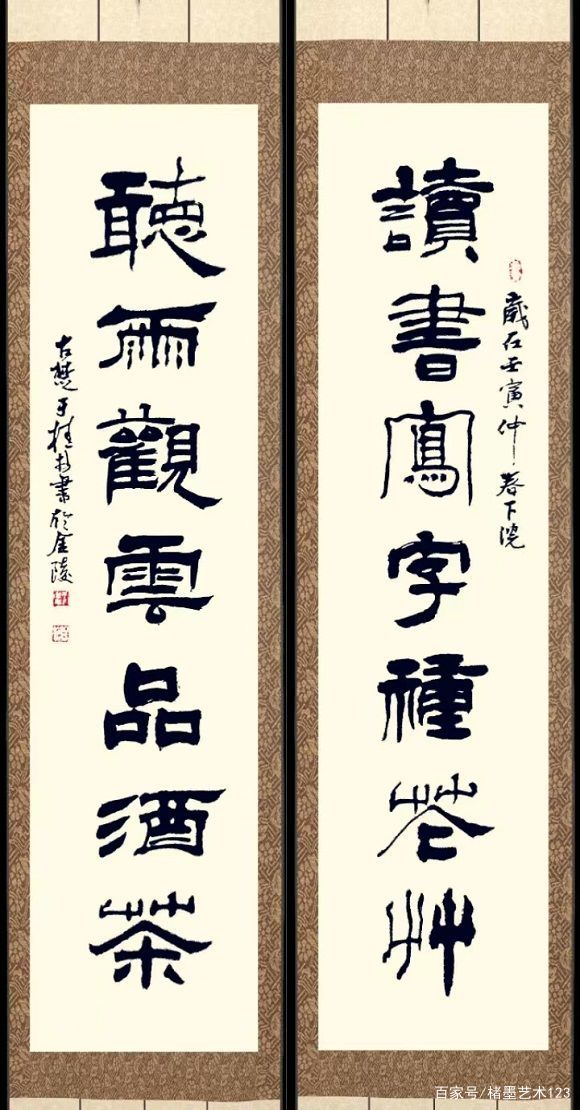 讀書寫字種花艸
歲在壬寅仲春下浣
聽雨觀雲品酒茶
古楚于桂書於金陵
百家号/楮墨艺术123